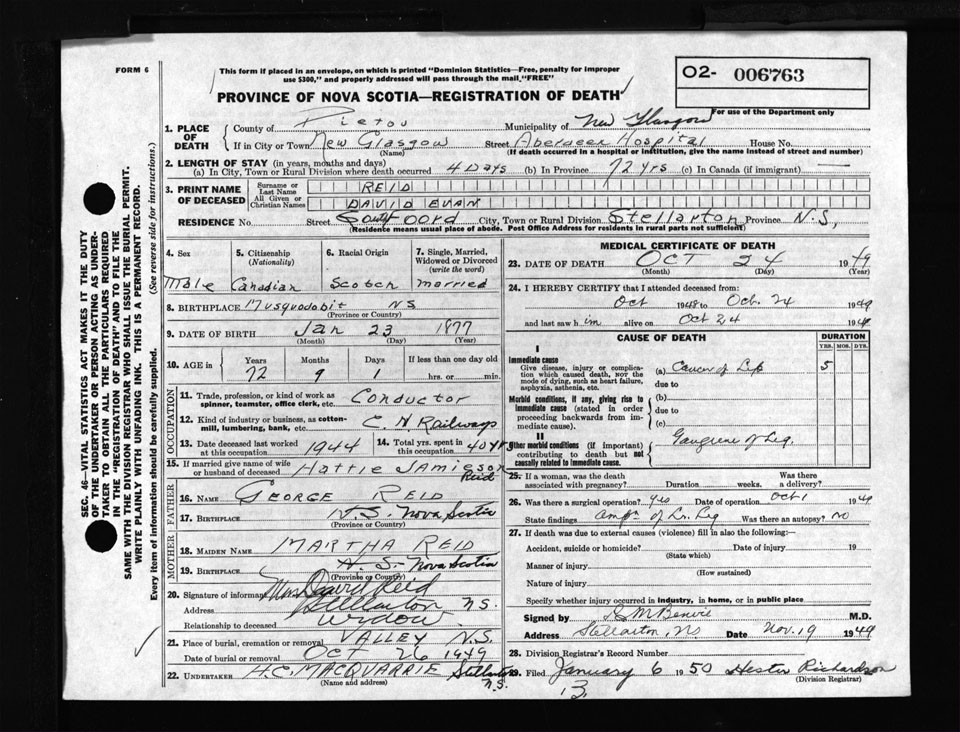 FORM 6
This form if placed in an envelope, on which is printed "Dominion Statistics—Free, penalty for improper
use $300," and properly addressed will pass through the mail "FREE"
O2- 006763
For use of the Department only
PROVINCE OF NOVA SCOTIA—REGISTRATION OF DEATH
1. PLACE OF DEATH { County of Pictou Municipality of New Glasgow
If in City or Town New Glasgow Street Aberdeen Hospital House No.
(Name) (If death occurred in a hospital or institution, give the name instead of street and number)
2. LENGTH OF STAY (in years, months and days)
(a) In City, Town or Rural Division where death occurred 4 Days (b) In Province 72 yrs (c) In Canada (if immigrant) —
3. PRINT NAME OF DECEASED { Surname or Last Name REID
All Given or Christian Names DAVID EVAN
RESIDENCE No. Street Foord City, Town or Rural Division Stellarton Province N.S,
(Residence means usual place of abode. Post Office Address for residents in rural parts not sufficient)
4. Sex 5. Citizenship (Nationality) 6. Racial Origin 7. Single, Married, Widowed or Divorced (write the word)
Male Canadian Scotch Married
8. BIRTHPLACE Musquodobit NS
(Province or Country)
9. DATE OF BIRTH Jan 23 1877
(Month) (Day) (Year)
10. AGE in { Years Months Days If less than one day old
72 9 1 hrs. or min.
OCCUPATION
11. Trade, profession, or kind of work as spinner, teamster, office clerk, etc. Conductor
12. Kind of industry or business, as cotton-mill, lumbering, bank, etc. C N Railways
13. Date deceased last worked at this occupation 1944 14. Total yrs. spent in this occupation 40 yr
15. If married give name of wife or husband of deceased Hattie Jamieson Reid
FATHER
16. Name GEORGE REID
17. Birthplace N.S. Nova Scotia
(Province or Country)
MOTHER
18. MAIDEN NAME MARTHA REID
19. Birthplace N.S- Nova Scotia
(Province or Country)
20. Signature of informant Mrs David Reid
Address Stellarton NS.
Relationship to deceased Widow
21. Place of burial, cremation or removal VALLEY N.S.
Date of burial or removal OCT 26 1949
22. UNDERTAKER H.C. MACQUARRIE Stellarton N.S.
(Name and address)
MEDICAL CERTIFICATE OF DEATH
23. DATE OF DEATH OCT 24 1949
(Month) (Day) (Year)
24. I HEREBY CERTIFY that I attended deceased from:
Oct 1948 to Oct. 24 1949
and last saw him alive on Oct 24 194
CAUSE OF DEATH DURATION
YRS. MOS. DYS.
I
Immediate cause
Give disease, injury or complication which caused death, NOT the mode of dying, such as heart failure, asphyxia, asthenia, etc.
(a) Cancer of Lip 5
due to
Morbid conditions, if any, giving rise to immediate cause (stated in order proceeding backwards from immediate cause).
(b)
due to
(c)
II
Other morbid conditions (if important) contributing to death but not causally related to immediate cause.
Gangrene of Leg.
25. If a woman, was the death associated with pregnancy? Duration weeks. Was there a delivery?
26. Was there a surgical operation? yes Date of operation Oct 1 1949
State findings Ampn of Lr. Leg Was there an autopsy? NO
27. If death was due to external causes (violence) fill in also the following:—
Accident, suicide or homicide? Date of injury 19
(State which)
Manner of injury
(How sustained)
Nature of injury
Specify whether injury occurred in industry, in home, or in public place
Signed by Benvie M.D.
Address Stellarton, NS Date Nov. 19 1949
28. Division Registrar's Record Number
29. Filed January 6 1950 Hester Richardson
(Division Registrar)
13
SEC. 46—VITAL STATISTICS ACT MAKES IT THE DUTY
OF THE UNDERTAKER OR PERSON ACTING AS UNDER-
TAKER TO OBTAIN ALL THE PARTICULARS REQUIRED
IN THE "REGISTRATION OF DEATH" AND TO FILE THE
SAME WITH THE DIVISION REGISTRAR WHO SHALL ISSUE THE BURIAL PERMIT.
WRITE PLAINLY WITH UNFADING INK. THIS IS A PERMANENT RECORD.
Every item of information should be carefully supplied. (See reverse side for instructions.)